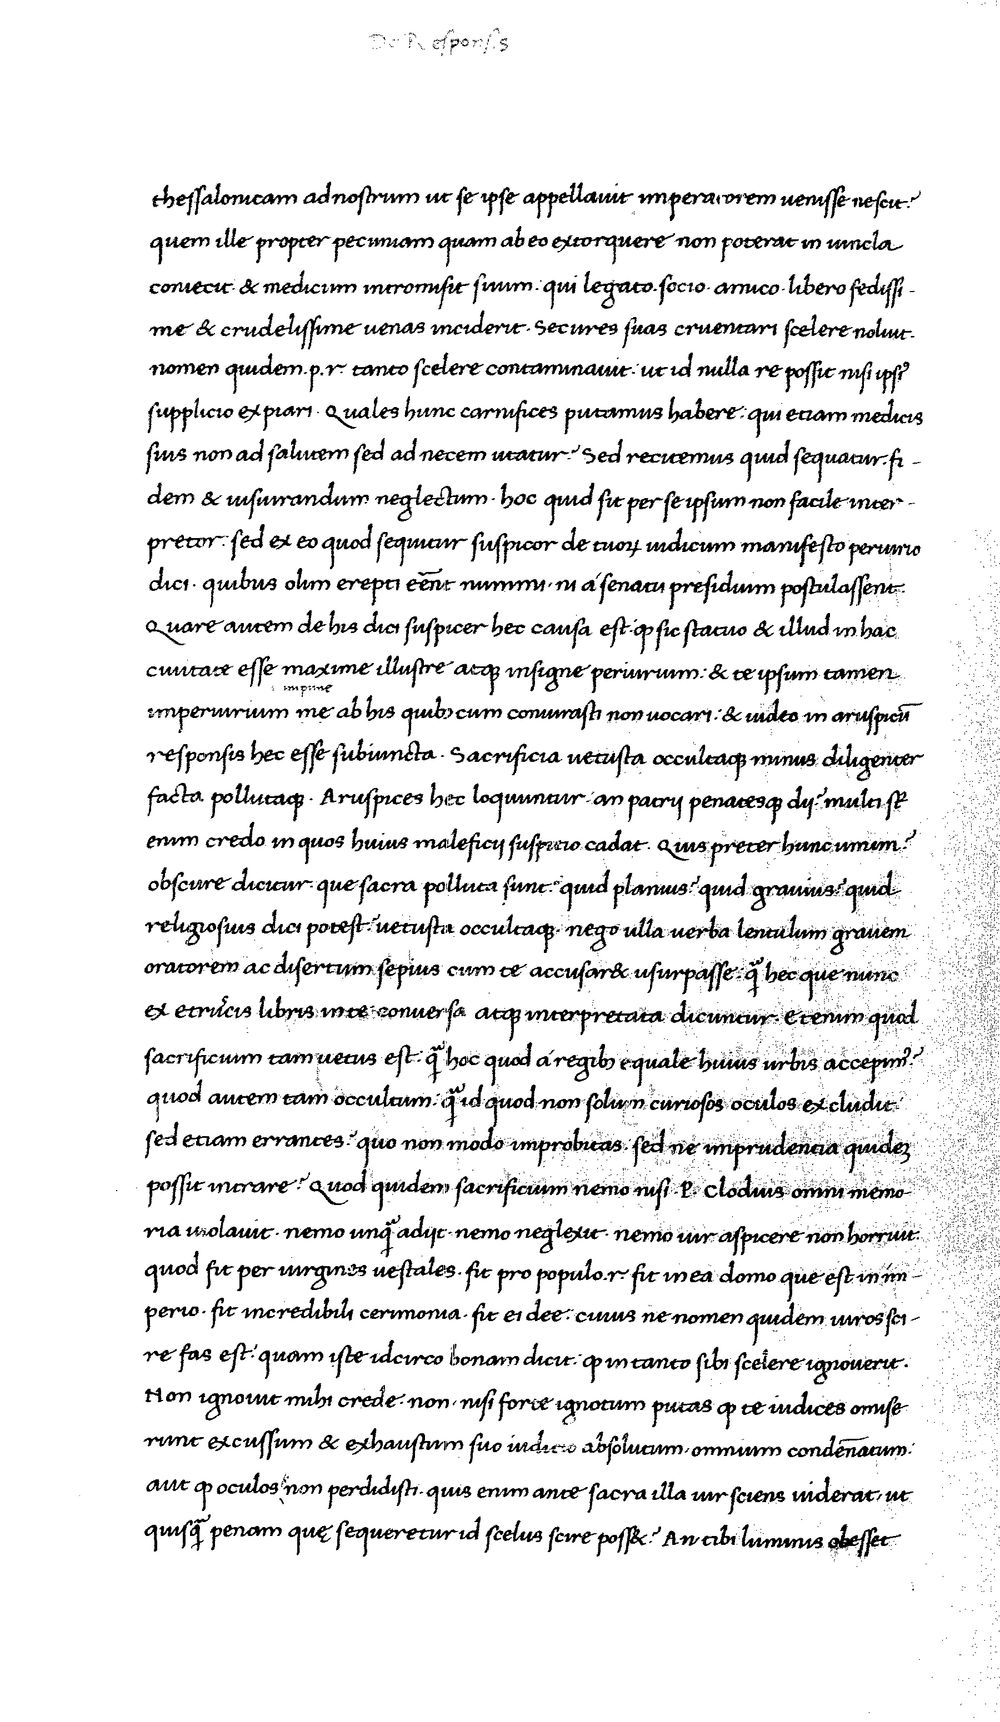 De Responsis
thessalonicam ad nostrum ut se ipse appellauit imperatorem uenisse nescit?
quem ille propter pecuniam quam ab eo extorquere non poterat in uincla
coniecit. & medicum intromisit suum: qui legato. socio. amico. libero fedissi-
me & crudelissime uenas inciderit. Secures suas cruentari scelere noluit.
nomen quidem .p.r. tanto scelere contaminauit: ut id nulla re possit nisi ipsi᾽
supplicio expiari. Quales hunc carnifices putamus habere: qui etiam medicis
suis non ad salutem sed ad necem utatur? Sed recitemus quid sequatur. fi-
dem & iusiurandum neglectum. hoc quid sit per se ipsum non facile inter-
pretor: sed ex eo quod sequitur suspicor de tuoꝝ iudicum manifesto periurio
dici. quibus olim erepti eēnt nummi. ni á senatu presidium postulassent.
Quare autem de his dici suspicer hec causa est. ꝙ sic statuo & illud in hac
ciuitate esse maxime illustre atqꝫ insigne periurium: & te ipsum tamen
impune
imperiurium me ab his quibꝫ cum coniurasti non uocari: & uideo in aruspicū
responsis hec esse subiuncta. Sacrificia uetusta occultaqꝫ minus diligenter
facta pollutaqꝫ. Aruspices hec loquuntur. an patrij penatesqꝫ dij? multi st̄
enim credo in quos huius maleficij suspicio cadat. Quis preter hunc unum?
obscure dicitur que sacra polluta sunt? quid planius? quid grauius? quid
religiosius dici potest? uetusta occultaqꝫ. nego ulla uerba lentulum grauem
oratorem ac disertum sepius cum te accusar& usurpasse. ꝗ̄ hec que nunc
ex etruscis libris in te conuersa atqꝫ interpretata dicuntur. etenim quod
sacrificium tam uetus est. ꝗ̄ hoc quod á regibꝫ equale huius urbis accepim᾽?
quod autem tam occultum. ꝗ̄ id quod non solum curiosos oculos excludit.
sed etiam errantes? quo non modo improbitas. sed ne imprudentia quideꝫ
possit intrare? Quod quidem sacrificium nemo nisi .P. Clodius omni memo-
ria uiolauit. nemo unꝗ̄ adijt. nemo neglexit. nemo uir aspicere non horruit.
quod fit per uirgines uestales. fit pro populo .r. fit in ea domo que est in im-
perio. fit incredibili cerimonia. fit ei dee: cuius ne nomen quidem uiros sci-
re fas est. quam iste idcirco bonam dicit: ꝙ in tanto sibi scelere ignouerit.
Non ignouit mihi crede. non. nisi forte ignotum putas ꝙ te iudices omise
runt excussum & exhaustum suo iudicio absolutum. omnium condēnatum.
aut ꝙ oculos non perdidisti. quis enim ante sacra illa uir sciens uiderat. ut
quisꝗ̄ penam quę sequeretur id scelus scire poss&? An tibi luminis obesset